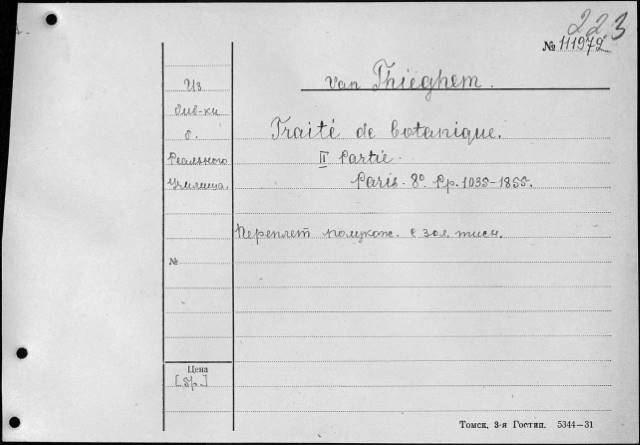 223
№ 111972
van Thieghem.
Из
биб-ки
б.
Реального
Училища.
Traité de botanique.
II Partie.
Paris. 8° Pp. 1035-1855.
Переплет полукож. с зол. тисн.
№
Цена
[др.]
Томск, 3-я Гостип. 5344—31